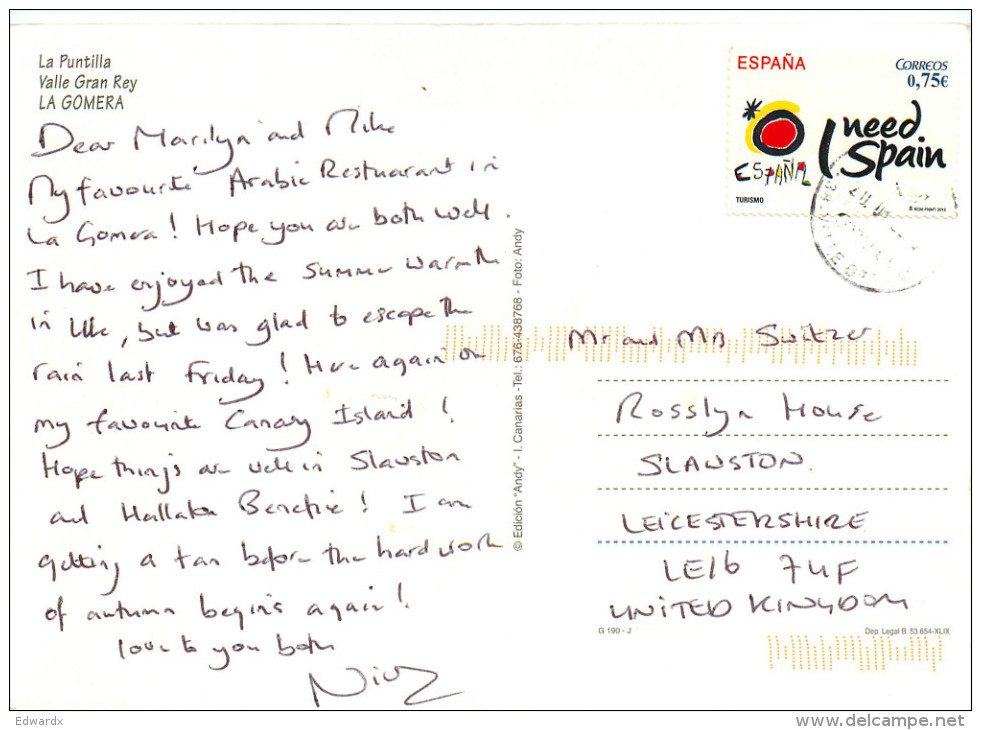 La Puntilla
Valle Gran Rey
LA GOMERA
Dear Marilyn and Mike
My favourite Arabic Restuarant in
La Gomera! Hope you are both well.
I have enjoyed the summer warmth
in UK, but was glad to escape the
rain last Friday! Here again on
my favourite Canary Island!
Hope things are well in Slawston
and Hallaton Benefice! I am
getting a tan before the hard work
of autumn begins again!
love to you both
© Edición "Andy" - I. Canarias -Tel.: 676-438768 - Foto: Andy
ESPAÑA
CORREOS
0,75€
I need
Spain
ESPAÑA
TURISMO
Mr and Mrs Switzer
Rosslyn House
SLAWSTON
LEICESTERSHIRE
LE16 7UF
UNITED KINGDOM
G 190 - J
Dep. Legal B. 53.654-XLIX
Edwardx
www.delcampe.net